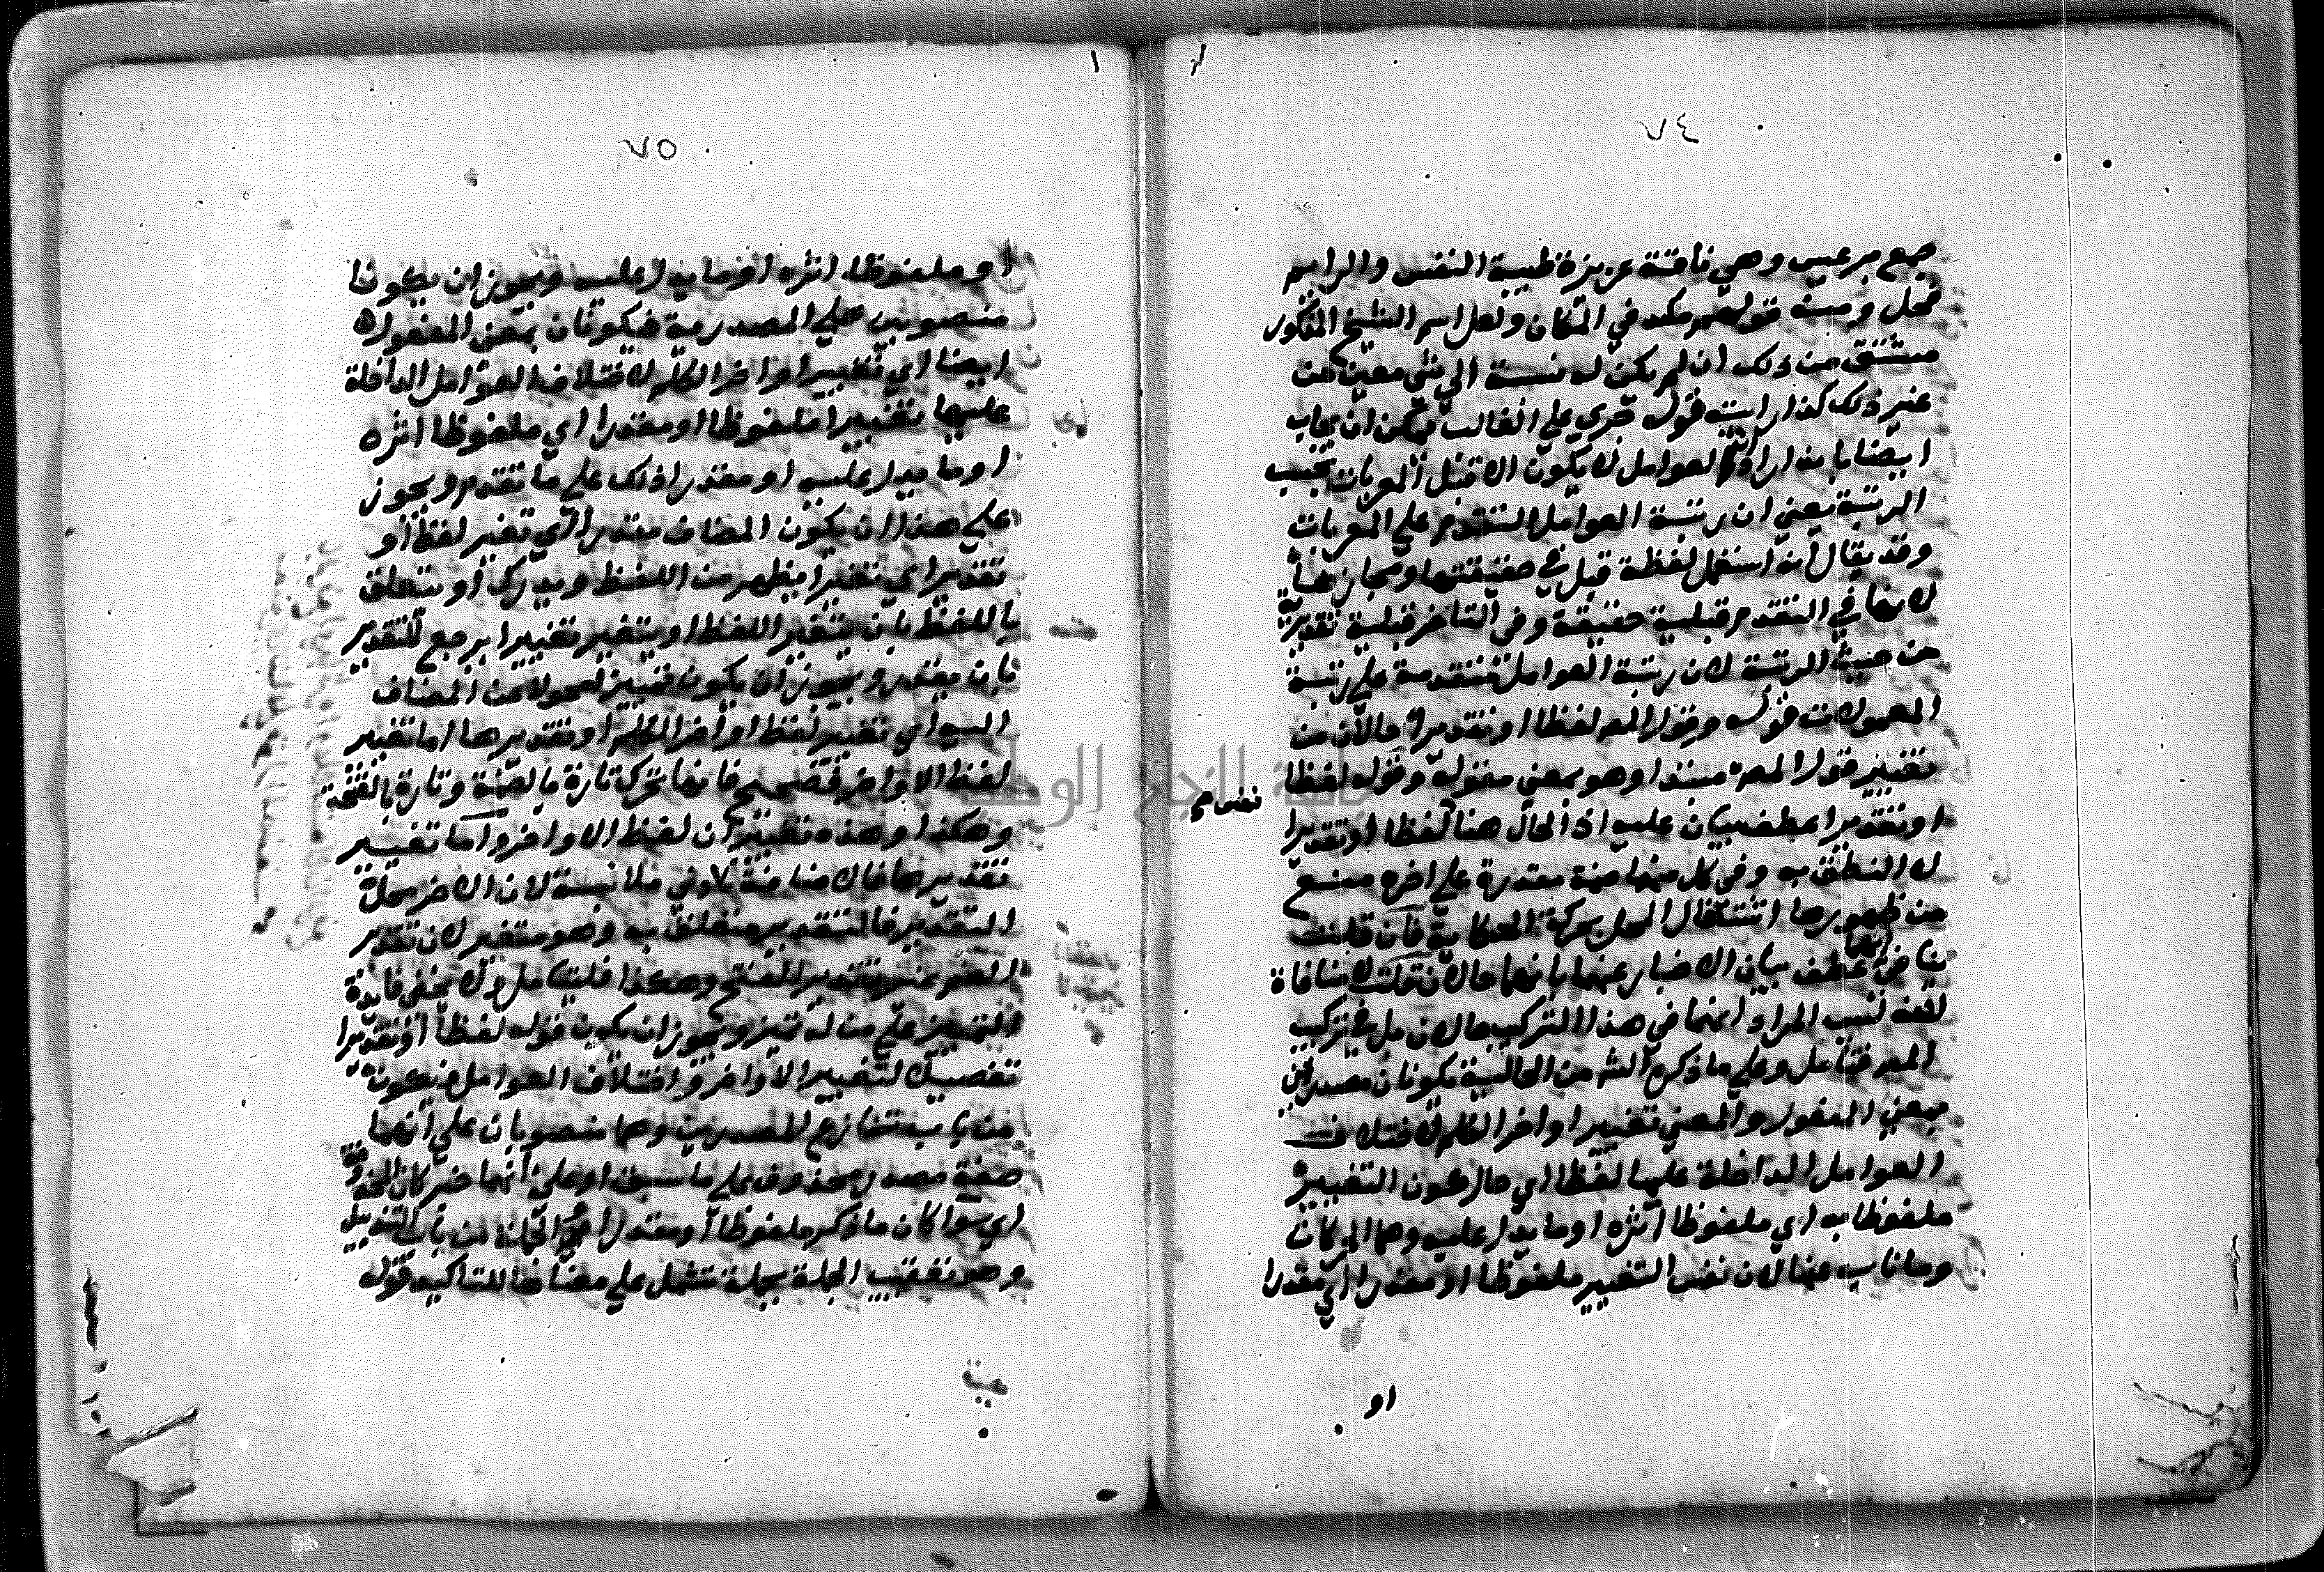 ٧٤
جمع مرعيس وهي ناقة عزيزة طيبة النفس والرايم
فحل ومنه قولهم مكد في المكان ولعل اسم الشيخ المذكور
مشتق من ذلك ان لم يكن له نسبة الى شي معين من
غير ذلك كذا رايت قوله جري على الغالب ويمكن ان يجاب
ايضا بانه اراد ان العوامل لا يكون الا قبل المعربات بحسب
الرتبة يعني ان رتبة العوامل التقدم على المعربات
وقد يقال انه استعمل لفظة قبل في حقيقتها ومجازها
لانها في التقدم قبلية حقيقة وفي التاخر قبلية تقديرية
من حيث الرتبة لان رتبة العوامل متقدمة على رتبة
المعمولات قوله وقول المص لفظا او تقديرا حالان من
تغيير قول المص مبتدا وهو بمعنى مقوله وقوله لفظا
او تقديرا عطف بيان عليه اذ الحال هنا لفظا او تقديرا
نفس م
لا النطق به وفي كل منهما ضمة مقدرة على اخره منع
من ظهورها اشتغال المحل بحركة الحكاية فان قلت
ينافي عطف بيان الاخبار عنهما بانهما حالان قلت لا منافاة
لانه ليس المراد انهما في هذا التركيب حالان بل في تركيب
المص فتامل وعلى ما ذكره الش من الحالية يكونان مصدرين
بمعنى المفعول والمعنى تغيير اواخر الكلم لاختلاف
العوامل الداخلة عليها لفظا اي حال كون التغيير
ملفوظا به اي ملفوظا اثره او ما يدل عليه وهما الحركات
وما ناب عنها لان نفس التغيير ملفوظا او مقدرا اي مقدرا
او
٧٥
او ملفوظا اثره او ما يدل عليه ويجوز ان يكونا
منصوبين على المصدرية فيكونان بمعنى المفعول
ايضا اي تغيير اواخر الكلم لاختلاف العوامل الداخلة
عليها تغييرا ملفوظا او مقدرا اي ملفوظا اثره
او ما يدل عليه او مقدرا ذلك على ما تقدم ويجوز
على هذا ان يكون المضاف مقدرا اي تغيير لفظ او
تقدير اي تغييرا يظهر من اللفظ ويدرك او يتعلق
باللفظ بان يتغير اللفظ او يتغير تغييرا يرجع للتقدير
بان يقدر ويجوز ان يكون تمييزا محولا عن المضاف
اليه اي تغيير لفظ اواخر الكلم او تقديرها اما تغيير
لفظ الاواخر فصحيح فانها تحرك تارة بالضمة وتارة بالفتحة
وهكذا وهذه تغييرات لفظ الاواخر واما تغيير
تقديرها فالاضافة لادنى ملابسة لان الاخر محل
التقدير فالتقدير متعلق به وهو متغير لان تقدير
الضم غير تقدير الفتح وهكذا فليتامل ولا يخفى فايدة
التمييز على من له تميز ويجوز ان يكون قوله لفظا او تقديرا
تفصيلا لتغيير الاواخر واختلاف العوامل فيكون
من باب تنازع المصدرين وهما منصوبان على انهما
صفة مصدر محذوف على ما سبق او على انهما خبر كان المحذوفة
اي سوا كان ما ذكر ملفوظا او مقدرا الجملة من باب التذييل
وهو تعقيب الجملة بجملة تشتمل على معناها للتاكيد قوله